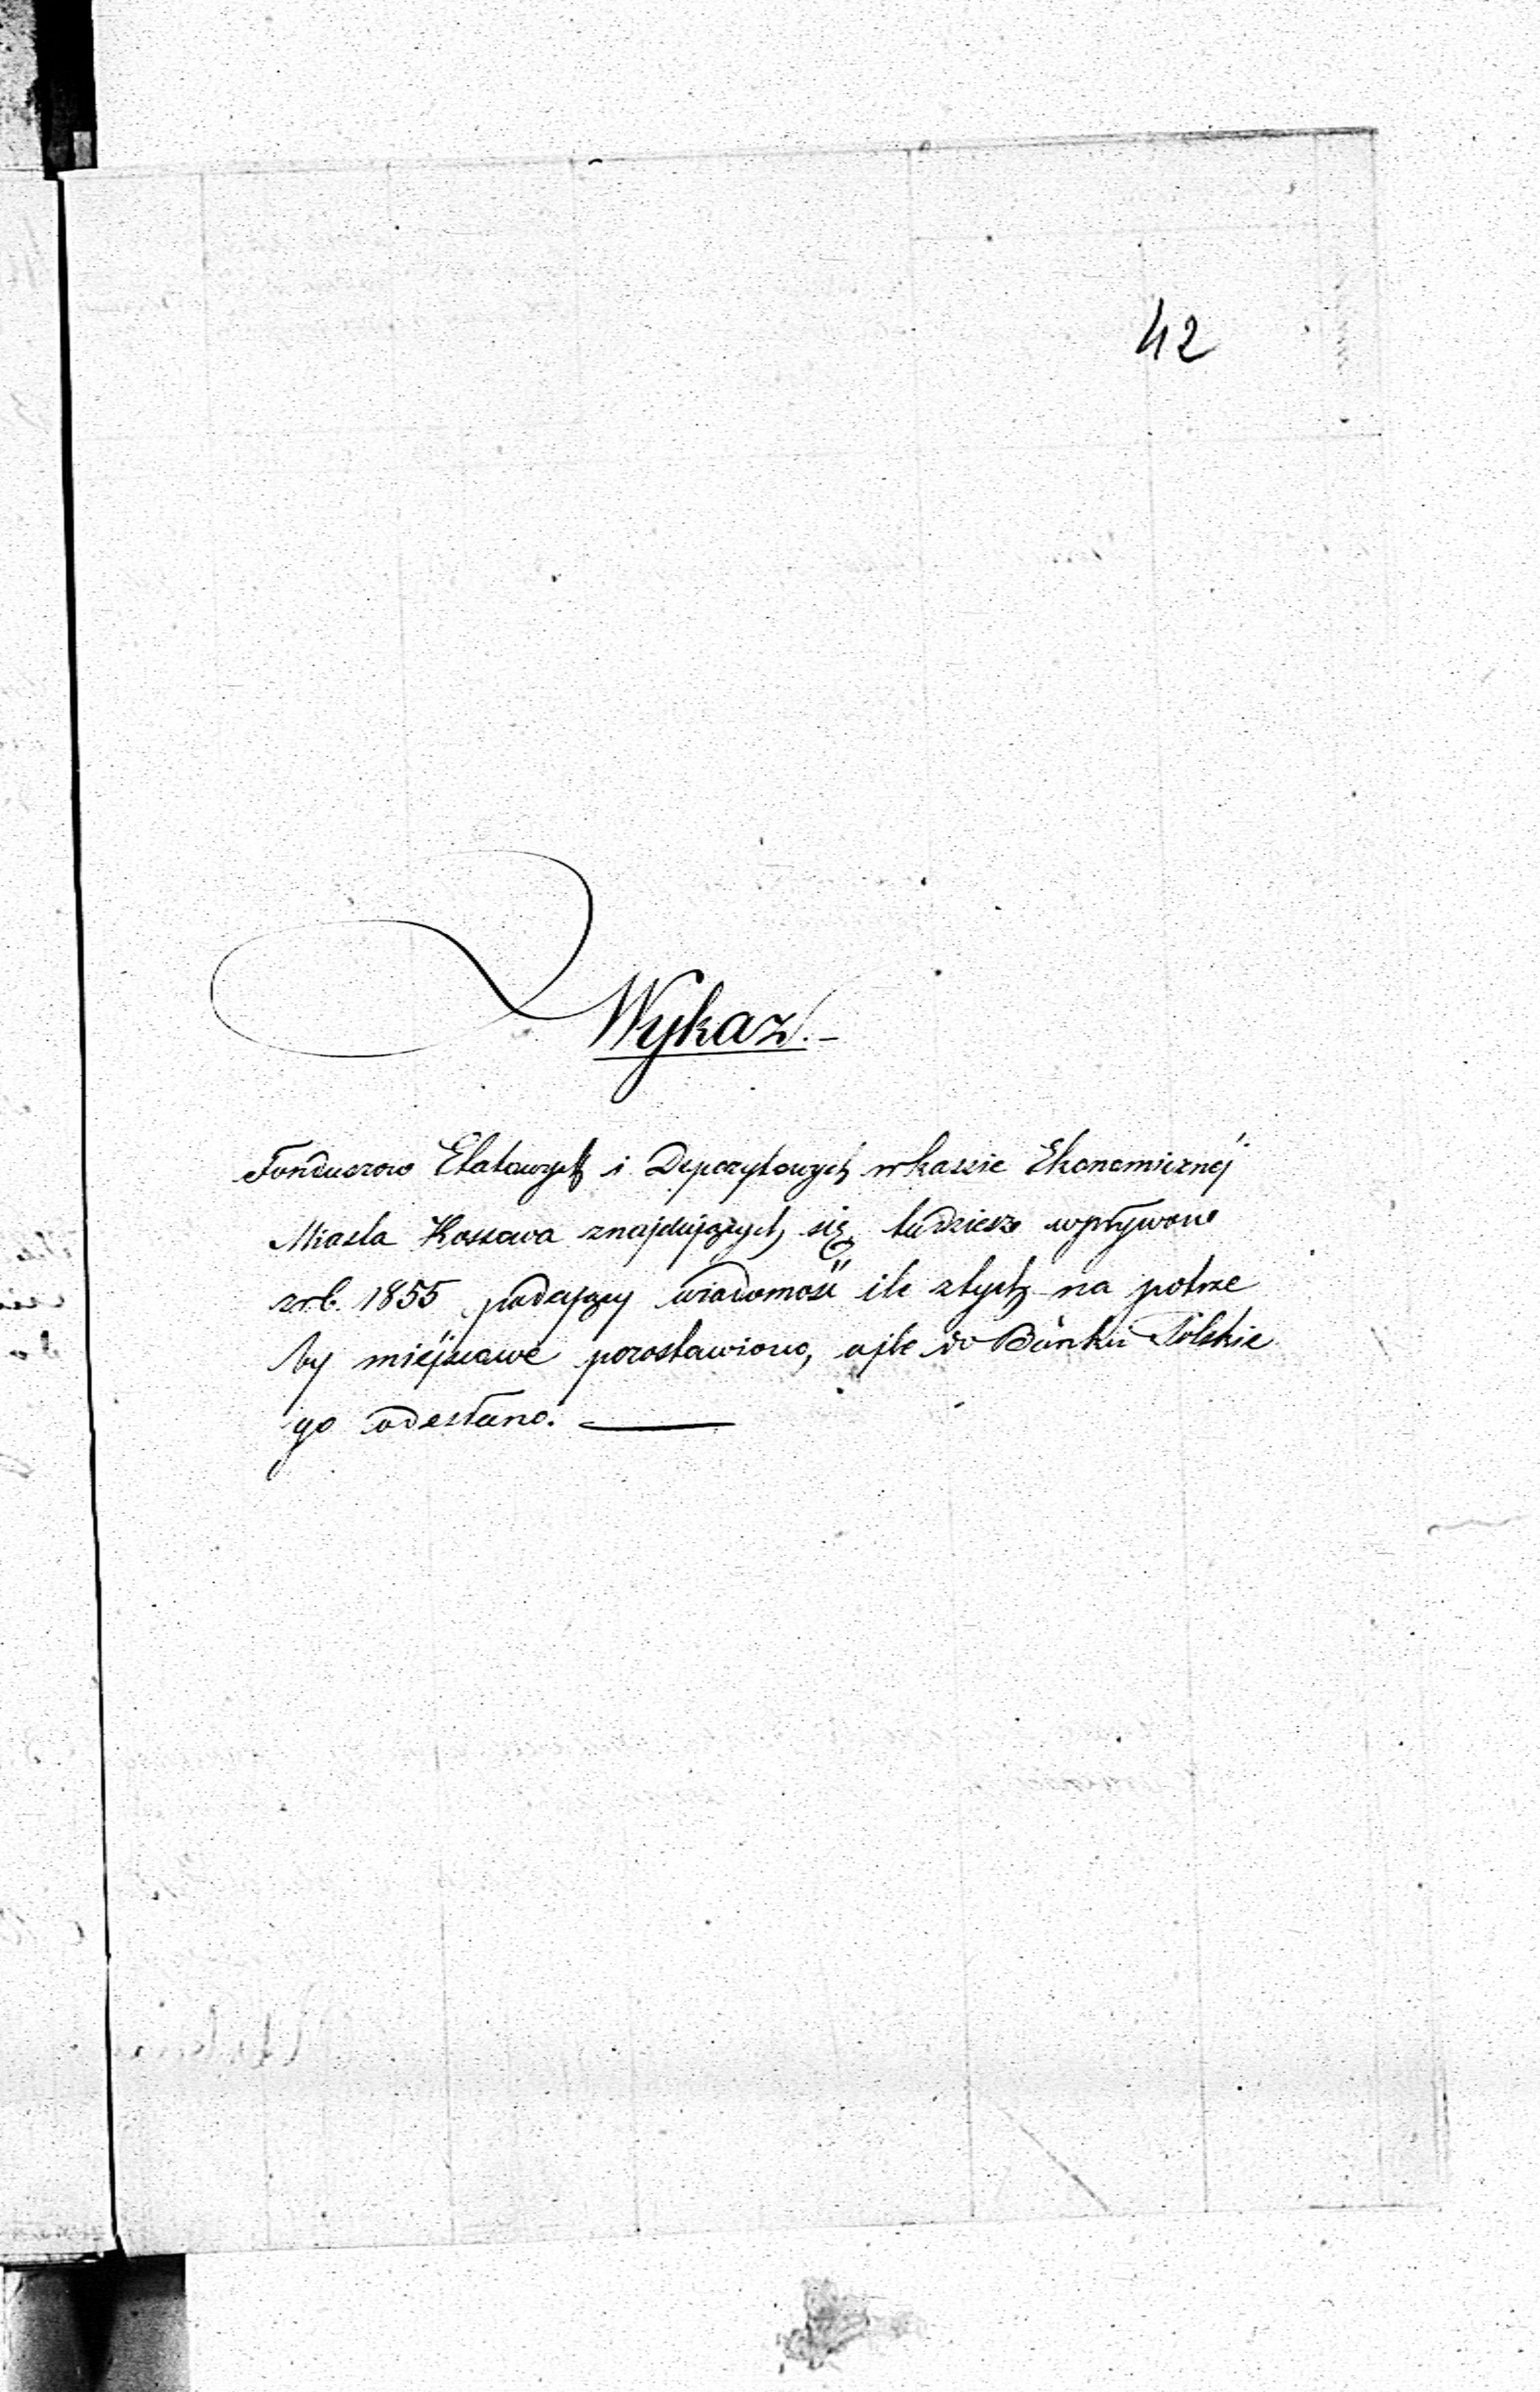 42
Wykaz.-
Funduszow Etatowych i Depozytowych w kassie Ekonomicznéj
Miasta Kossowa znajdujących się, tudziesz wpływow
z r. b. 1855 podający wiadomość ile z tych na potrze
by miéjscowe pozostawiono, a ile do Banku Polskie
go odesłano. —